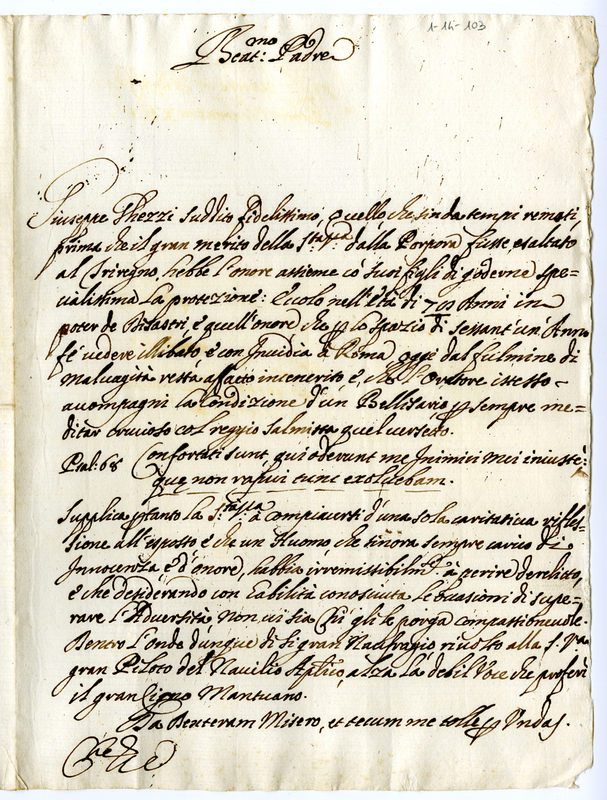 1-14-103
Beat:mo Padre
Giuseppe Ghezzi suddito fidelissimo, quello che sin da tempi remoti
prima che il gran merito della S.tà sua dalla Porpora fusse esaltato
al Triregno, hebbe l'onore assieme có suoi figli di goderne spe=
cialissima la protezione: Eccolo nell'età di Anni in
poter de Disastri, e quell'onore che p lo spazio di sessant'un'Anno
fé vedere illibato e con Invidia à Roma, oggi dal fulmine di
malvagità resta affatto incenerito e, che l'Oratore istesso
accompagni la condizione d'un Bellisario p sempre me=
ditar cruccioso col reggio salmista quel versetto.
Psal: 68 Confortati sunt qui oderunt me Inimici mei iniustè:
que non rapui tunc exolvebam.
Supplica ptanto la S.tà à compiacersi d'una sola caritativa rifles=
sione all'esposto e che un Huomo che sinora sempre carico di
Innocenza e d'onore, habbia irremissibilm.te à perire derelitto,
e che desiderando con l'abilità conosciuta le occasioni di supe=
rare l'Adversità non vi sia chi gli le porga compassionevole.
Dentro l'onde dunque di si gran Naufragio rivolto alla S. V.ra
gran Piloto del Navilio Aplico, alza la debil Voce che proferì
il gran Cigno Mantuano.
Da Dexteram Misero, et tecum me tolle p Undas.
Che